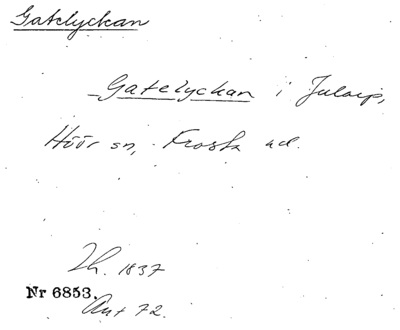 Gatelyckan
Gatelyckan i Jularp,
Höör sn, Frosta hd.
Lh. 1837
Nr 6853.
Ant 72.